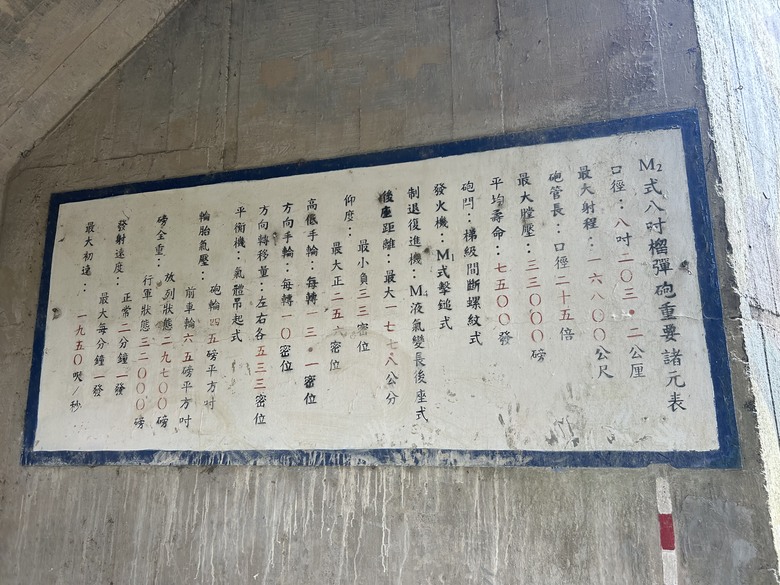 M2式八吋榴彈砲重要諸元表
口徑：八吋二〇三•二公厘
最大射程：一六八〇〇公尺
砲管長：口徑二十五倍
最大膛壓：三三〇〇〇磅
平均壽命：七五〇〇發
砲閂：梯級間斷螺紋式
發火機：M1式擊鎚式
制退復進機：M1液氣變長後座式
後座距離：最大一七七八公分
仰度：最小負三三密位
最大正二五六密位
高低手輪：每轉一三•一密位
方向手輪：每轉一〇密位
方向轉移量：左右各五三三密位
平衡機：氣體吊起式
輪胎氣壓：砲輪四五磅平方吋
前車輪六五磅平方吋
磅全重：放列狀態二九七〇〇磅
行軍狀態三二〇〇〇磅
發射速度：正常二分鐘一發
最大每分鐘一發
最大初速：一九五〇呎/秒